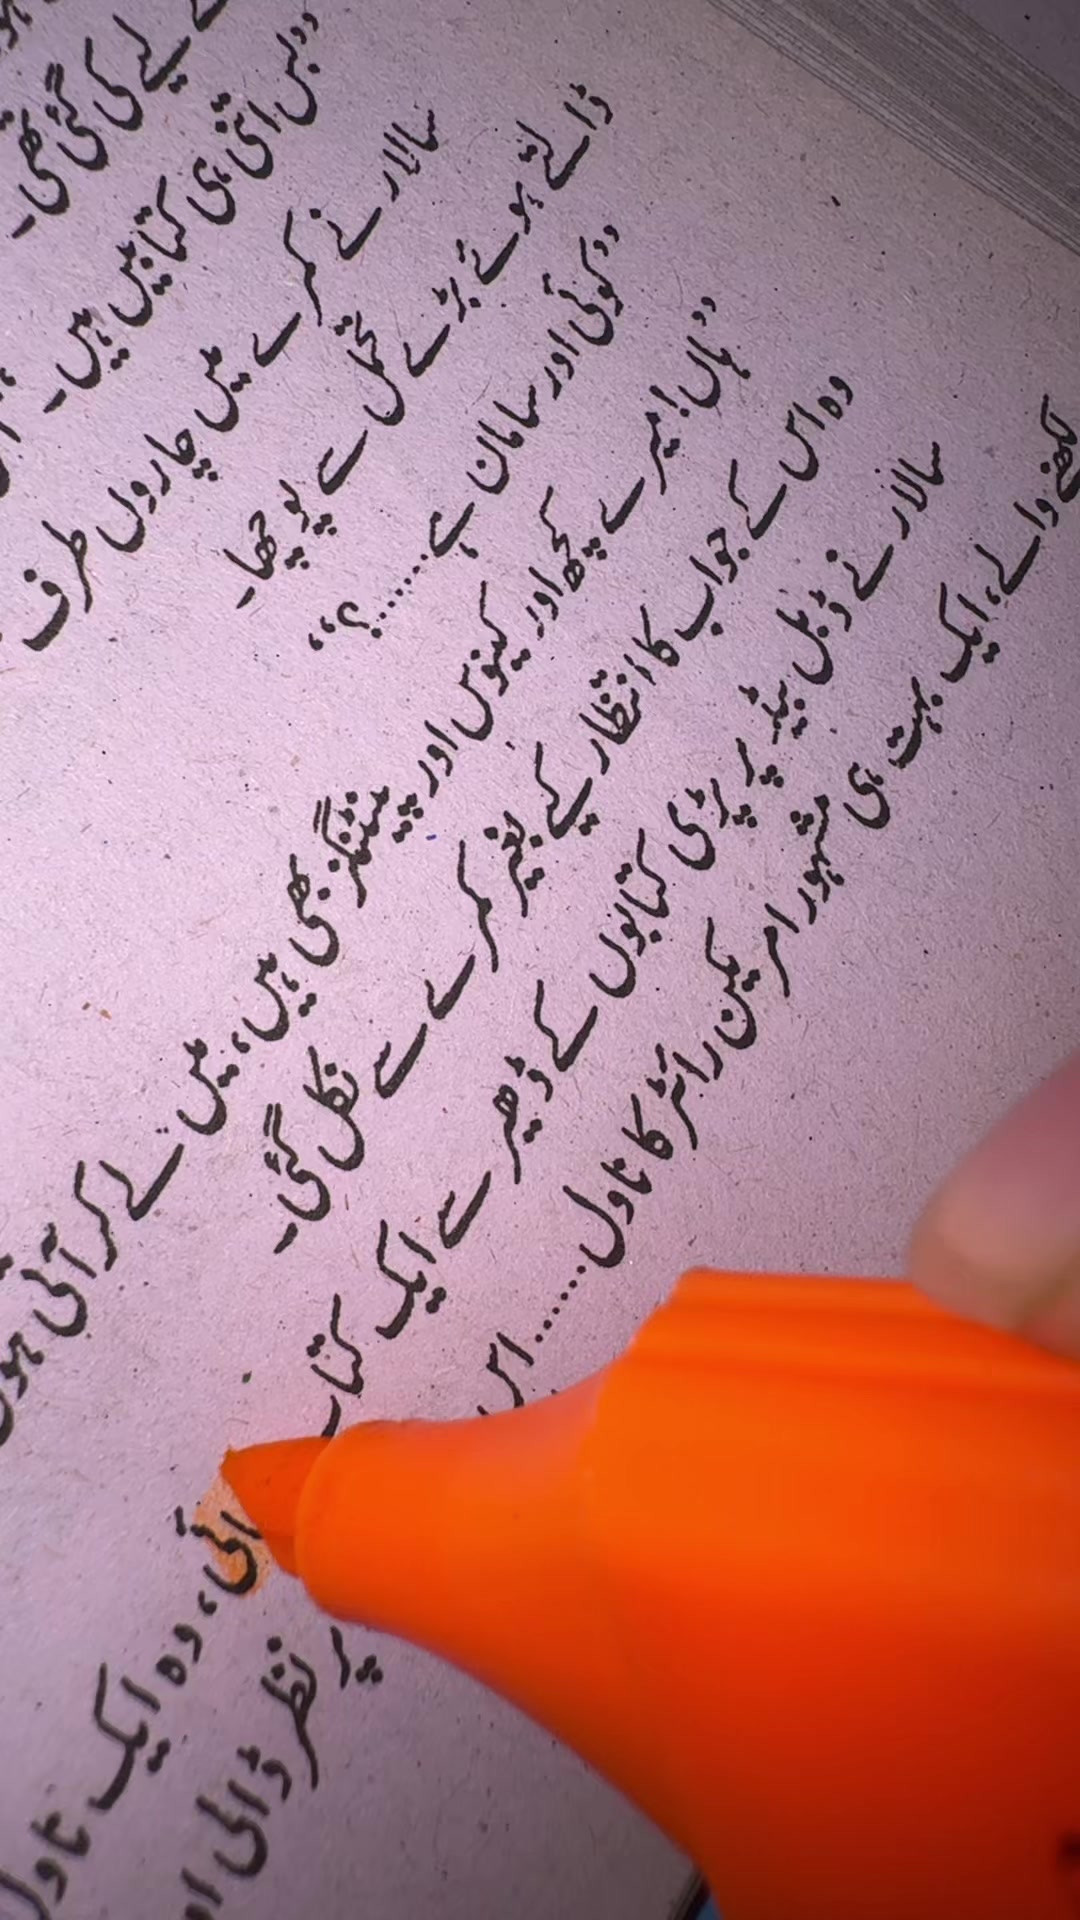 کے لیے کی گئی تھی۔
’’بس اتنی ہی کتابیں ہیں۔
سالار نے کمرے میں چاروں طرف
ڈالتے ہوئے بڑے تحمل سے پوچھا۔
’’کوئی اور سامان ہے......؟‘‘
’’ہاں! میرے کچھ اور کینوس اور پینٹنگز بھی ہیں، میں لے کر آئی ہوں
وہ اس کے جواب کا انتظار کیے بغیر کمرے سے نکل گئی۔
سالار نے ڈبل بیڈ پر پڑی کتابوں کے ڈھیر سے ایک کتاب ائی، وہ ایک ناول
والے، ایک بہت ہی مشہور امریکن رائٹر کا ناول...... اس پر نظر ڈالی